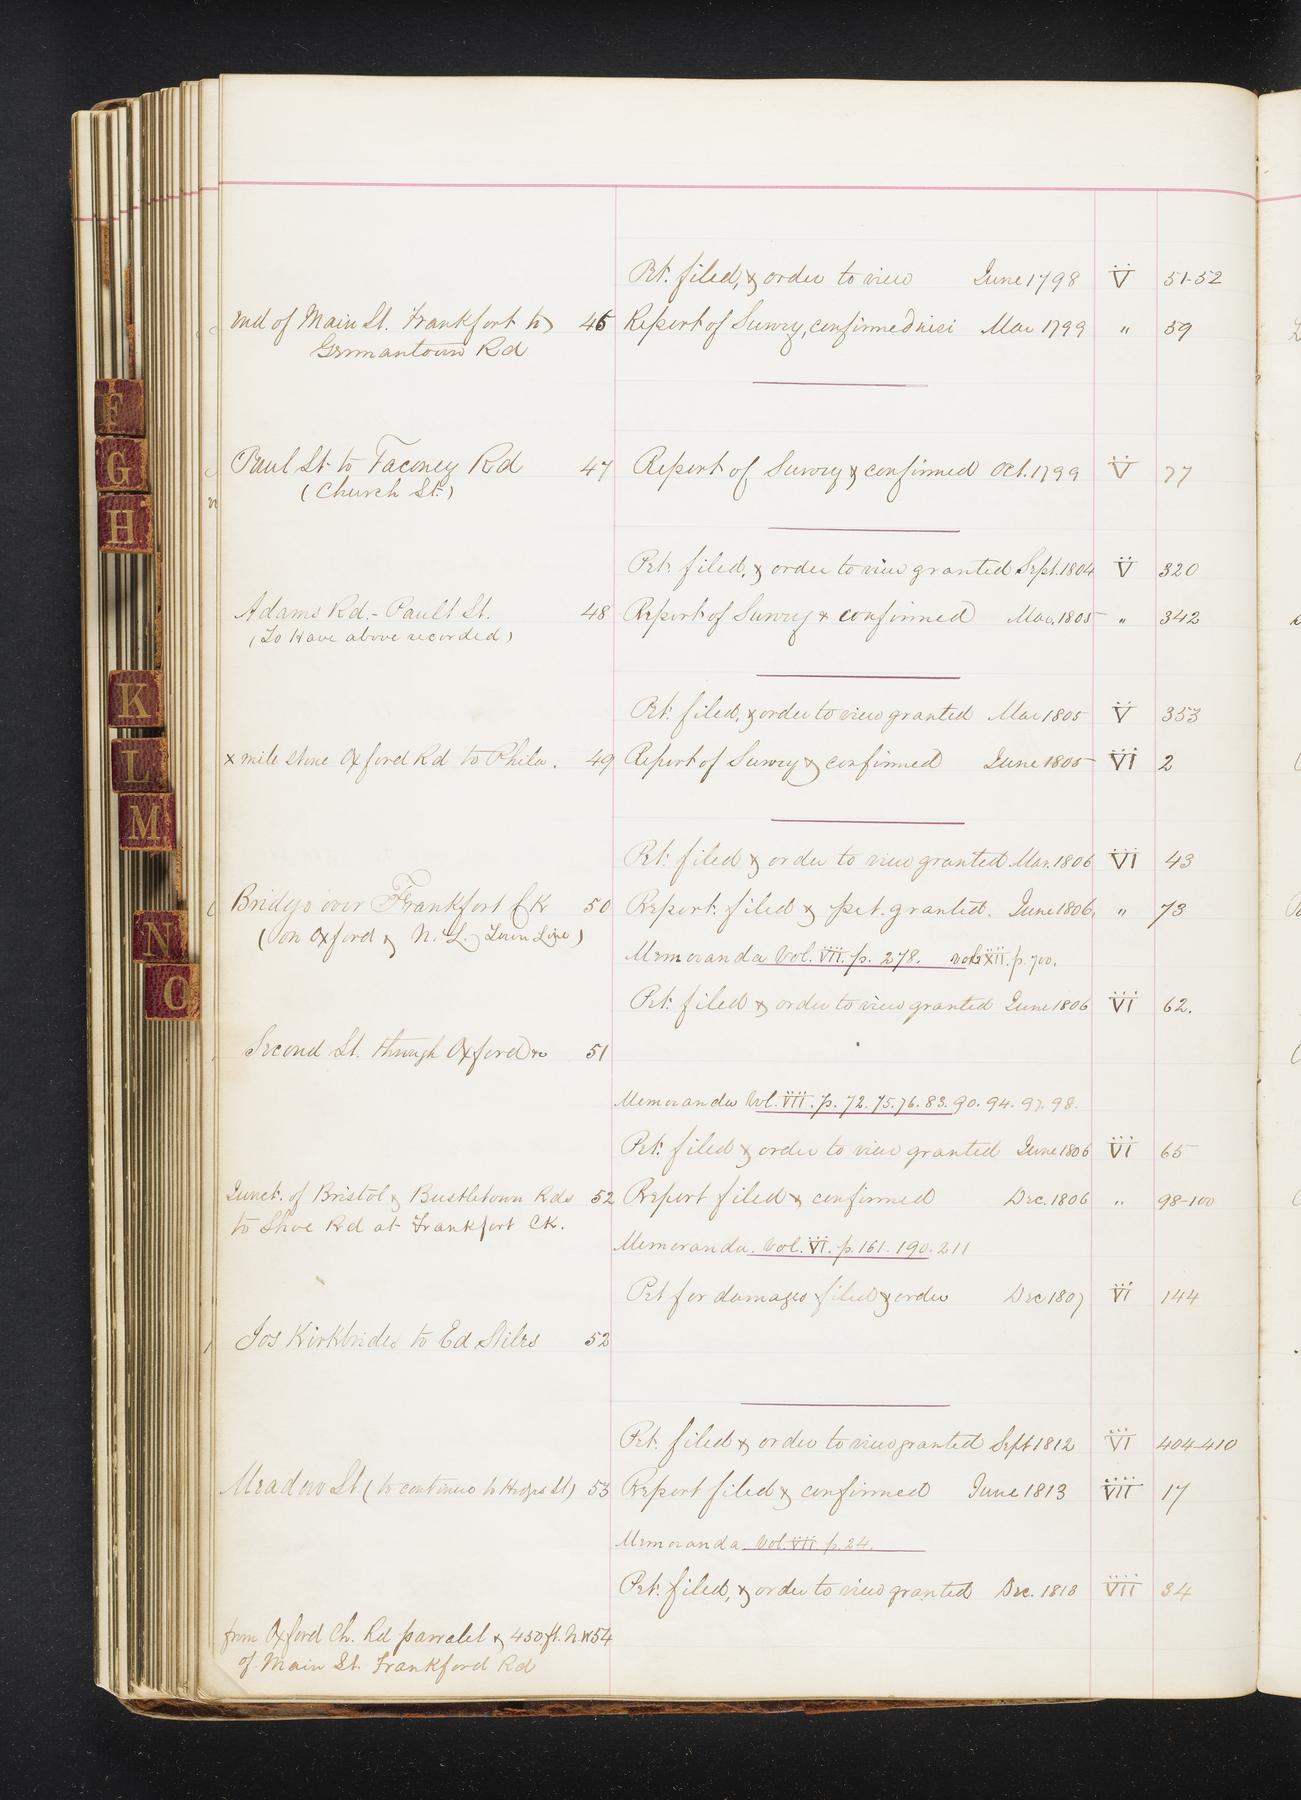 Pet. filed, & order to view June 1798 V 51-52
end of Main St. Frankfort to 45 Report of Survey, confirmed nisi Mar 1799 " 59
Germantown Rd
Paul St. to Taconey Rd 47 Report of Survey & confirmed Oct. 1799 V 77
(Church St.)
Pet. filed, & order to view granted Sept. 1804 V 320
Adams Rd. - Paul St. 48 Report of Survey & confirmed Mar. 1805 " 342
(To Have above recorded)
Pet. filed, & order to view granted Mar 1805 V 353
x mile stone Oxford Rd to Phila. 49 Report of Survey & confirmed June 1805 VI 2
Pet. filed & order to view granted Mar. 1806 VI 43
Bridge over Frankfort Ck 50 Report filed & pet. granted. June 1806, " 73
(on Oxford & N. L. Town Line)
Memoranda Vol. VII. p. 278. vol. XII. p. 700.
Pet. filed & order to view granted June 1806 VI 62.
Second St. through Oxford &c 51
Memoranda Vol. VII. p. 72. 75. 76. 83. 90. 94. 97. 98.
Pet. filed & order to view granted June 1806 VI 65
Junct. of Bristol & Bustletown Rds 52 Report filed & confirmed Dec. 1806 " 98-100
to Shoe Rd at Frankfort Ck.
Memoranda. Vol. VI. p. 161. 190. 211
Pet for damages filed & order Dec 1807 VI 144
Jos Kirkbrides to Ed Stiles 52
Pet. filed & order to view granted Sept 1812 VI 404-410
Meadow St. (to continue to Hedges St) 53 Report filed & confirmed June 1813 VII 17
Memoranda Vol. VII. p. 24.
Pet. filed, & order to view granted Dec. 1813 VII 34
from Oxford Ch. Rd parralel & 450 ft. N.W 54
of Main St. Frankford Rd
F
G
H
K
L
M
N
O